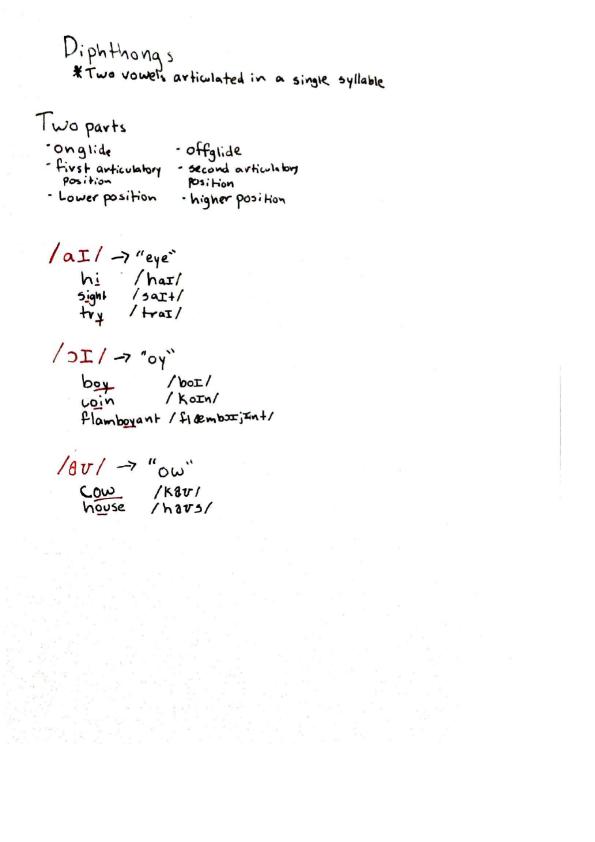 Diphthongs
*Two vowels articulated in a single syllable
Two parts
- onglide - offglide
- first articulatory position - second articulatory position
- Lower position - higher position
/aɪ/ → "eye"
hi /haɪ/
sight /saɪt/
try /traɪ/
/ɔɪ/ → "oy"
boy /boɪ/
coin /koɪn/
flamboyant
/aʊ/ → "ow"
cow /kaʊ/
house /haʊs/